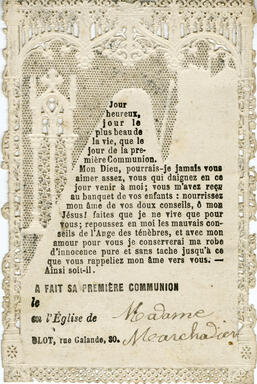 Jour
heureux,
jour le
plus beau de
la vie, que le
jour de la pre-
mière Communion.
Mon Dieu, pourrais-je jamais vous
aimer assez, vous qui daignez en ce
jour venir à moi; vous m'avez reçu
au banquet de vos enfants : nourrissez
mon âme de vos doux conseils, ô mon
Jésus! faites que je ne vive que pour
vous; repoussez en moi les mauvais con-
seils de l'Ange des ténèbres, et avec mon
amour pour vous je conserverai ma robe
d'innocence pure et sans tache jusqu'à ce
que vous rappeliez mon âme vers vous. —
Ainsi soit-il.
A FAIT SA PREMIÈRE COMMUNION
le
en l'Église de Madame
BLOT, rue Galande, 30.